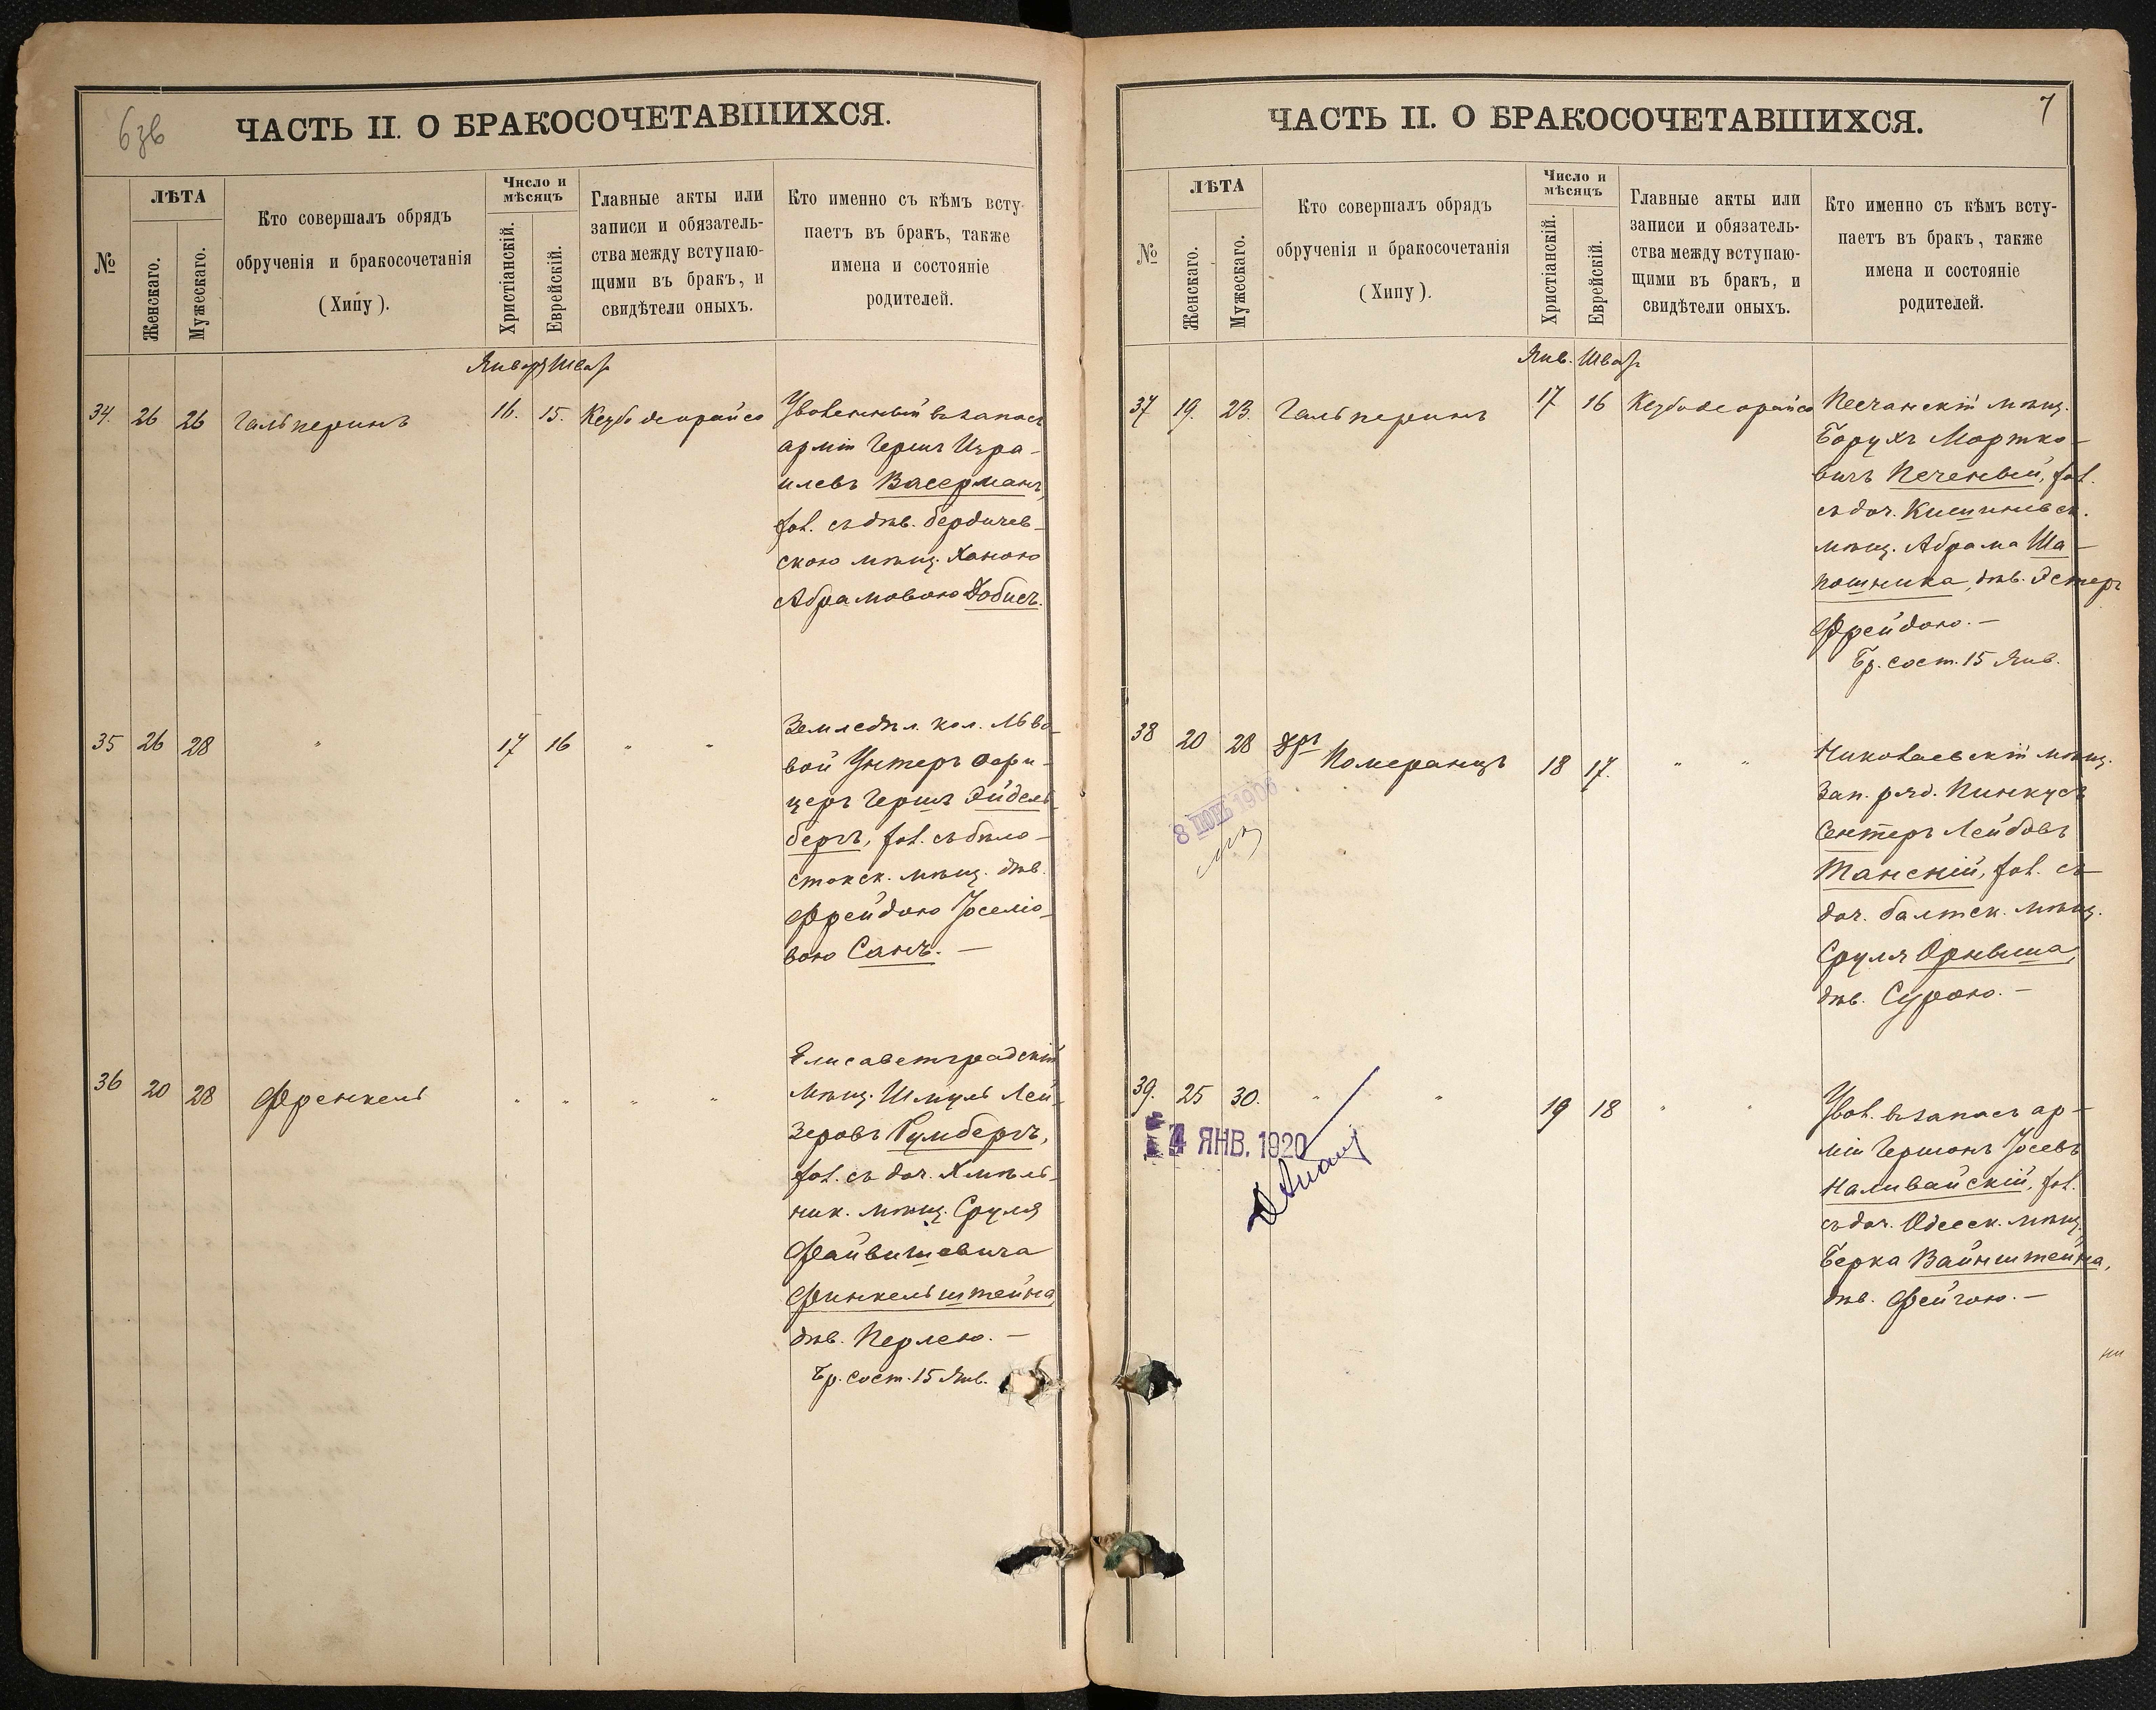 6зв
ЧАСТЬ II. О БРАКОСОЧЕТАВШИХСЯ.
№
ЛѢТА
Женскаго.
Мужескаго.
Кто совершалъ обрядъ
обрученія и бракосочетанія
(Хипу).
Число и
мѣсяцъ
Христіанскій.
Еврейскій.
Главные акты или
записи и обязатель-
ства между вступаю-
щими въ бракъ, и
свидѣтели оныхъ.
Кто именно съ кѣмъ всту-
паетъ въ бракъ, также
имена и состояніе
родителей.
Январ Шват
34. 26 26 Гальперинъ 16. 15. Кезубо деорайсо
Уволенный въ запасъ
арміи Гершъ Изра-
илевъ Васерманъ,
хол. съ дѣв. бердичев-
скою мѣщ. Ханою
Абрамовою Добисъ.
35 26 28 " 17 16 " "
Земледѣл. кол. Льво-
вой Унтеръ офи-
церъ Гершъ Эйдель-
бергъ, хол. съ бѣло-
стокск. мѣщ. дѣв.
Фрейдою Іоселіо-
вою Санъ. —
36 20 28 Френкель " " " "
Елисаветградскій
мѣщ. Шмуль Лей-
зеровъ Гумбергъ,
хол. съ доч. Хмѣль-
ник. мѣщ. Сруля
Файвишевича
Финкельштейна,
дѣв. Перлею. —
Бр. сост. 15 Янв.
7
ЧАСТЬ II. О БРАКОСОЧЕТАВШИХСЯ.
№
ЛѢТА
Женскаго.
Мужескаго.
Кто совершалъ обрядъ
обрученія и бракосочетанія
(Хипу).
Число и
мѣсяцъ
Христіанскій.
Еврейскій.
Главные акты или
записи и обязатель-
ства между вступаю-
щими въ бракъ, и
свидѣтели оныхъ.
Кто именно съ кѣмъ всту-
паетъ въ бракъ, также
имена и состояніе
родителей.
Янв. Шват
37 19. 23. Гальперинъ 17 16 Кезубо деорайсо
Песчанскій мѣщ.
Борухъ Мортко-
вичъ Печеный, хол.
съ доч. Кишиневск.
мѣщ. Абрама Ша-
пошника, дѣв. Эстеръ
Фрейдою. —
Бр. сост. 15 Янв.
38 20 28 Дръ Померанцъ 18 17. " "
Николаевскій мѣщ.
Зап. ряд. Пинкусъ
Сентеръ Лейбовъ
Танскій, хол. съ
доч. балтск. мѣщ.
Сруля Орныша,
дѣв. Сурою. —
39. 25 30. " " 19 18 " "
14 ЯНВ. 1920
Увол. въ запасъ ар-
міи Гершонъ Іосевъ
Наливайскій, хол.
съ доч. Одесск. мѣщ.
Берка Вайнштейна,
дѣв. Фейгою. —